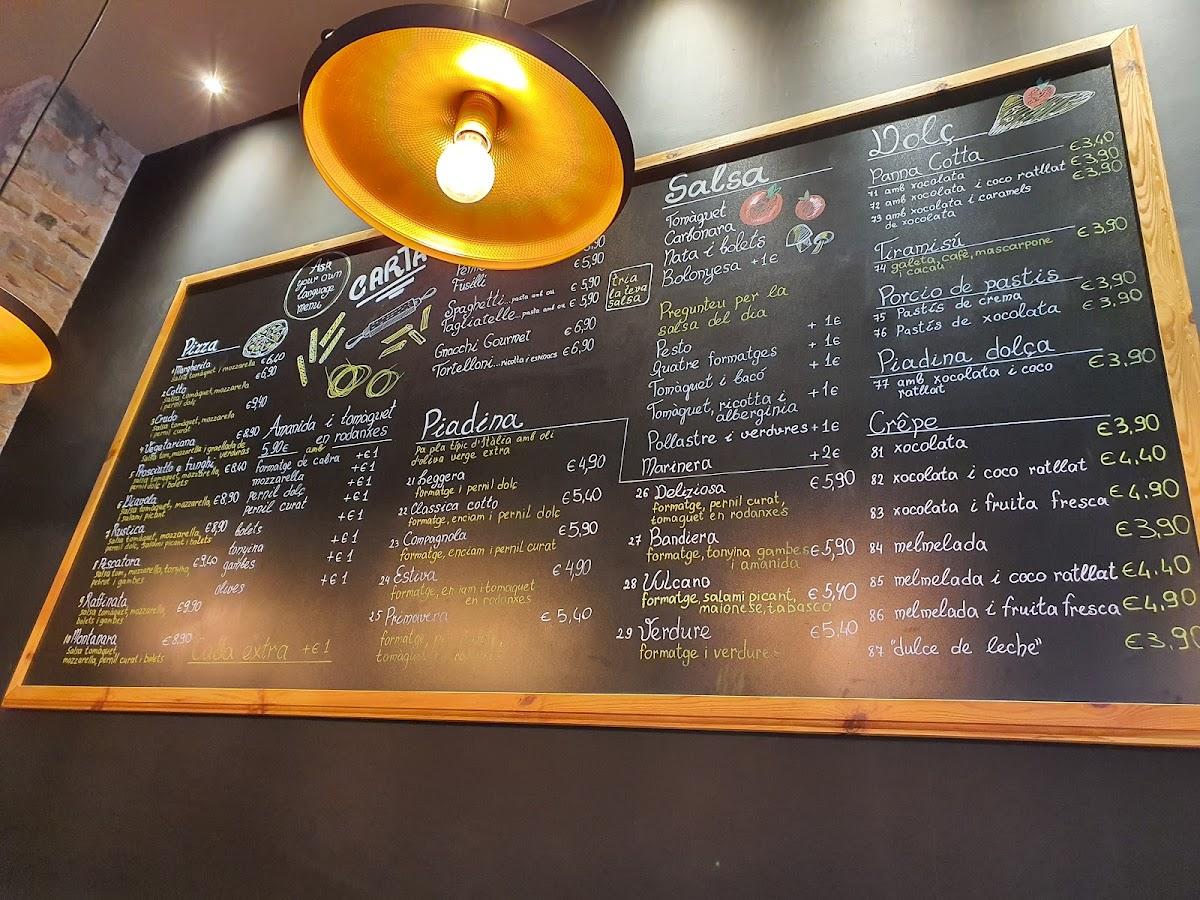 Ask
your own
language
menu
CARTA
Pizza
1 Margherita €6,40
salsa tomàquet i mozzarella
2 Cotto €6,90
salsa tomàquet, mozzarella
i pernil dolç
3 Crudo €9,40
salsa tomàquet, mozzarella
i pernil curat
4 Vegetariana €8,90
salsa tom, mozzarella i graellada de
verduras
5 Prosciutto e funghi, €8,40
salsa tomàquet, mozzarella,
pernil dolç i bolets
6 Diavola €8,90
salsa tomàquet, mozzarella,
i salami picant
7 Rustica €8,90
salsa tomàquet, mozzarella,
pernil dolç, salami picant i bolets
8 Pescatora €9,40
salsa tom, mozzarella, tonyina,
i gambes
9 Raffinata €9,90
salsa tomàquet, mozzarella,
bolets i gambes
10 Montanara €8,90
salsa tomàquet,
mozzarella, pernil curat i bolets
Amanida i tomàquet
5,90€ amb en rodanxes
formatge de cabra +€1
mozzarella +€1
pernil dolç +€1
pernil curat +€1
bolets +€1
tonyina +€1
gambes +€1
olives +€1
Cada extra +€1
5,90
Fusilli €5,90
Spaghetti...pasta amb ou €5,90
Tagliatelle...pasta amb ou €5,90
Gnocchi Gourmet €6,90
Tortelloni...ricotta i espinacs €6,90
tria
la teva
salsa
Piadina
Pa pla típic d'Itàlia amb oli
d'oliva verge extra
21 Leggera €4,90
formatge i pernil dolç
22 Classica cotto €5,40
formatge, enciam i pernil dolç
23 Compagnola €5,90
formatge, enciam i pernil curat
24 Estiva €4,90
formatge, enciam i tomaquet
en rodanxes
25 Primavera €5,40
formatge,
Salsa
Tomàquet
Carbonara
Nata i bolets
Bolonyesa +1€
Pregunteu per la
salsa del dia
Pesto +1€
Quatre formatges +1€
Tomàquet i bacó +1€
Tomàquet, ricotta i
albergínia +1€
Pollastre i verdures +1€
Marinera +2€
26 Deliziosa €5,90
formatge, pernil curat,
tomaguet en rodanxes
27 Bandiera
formatge, tonyina gambes €5,90
i amanida
28 Vulcano
formatge, salami picant, €5,40
maionese, tabasco
29 Verdure €5,40
formatge i verdures
Dolç
Panna Cotta
71 amb xocolata €3,40
72 amb xocolata i coco ratllat €3,90
73 amb xocolata i caramels €3,90
de xocolata
Tiramisú
74 galeta, cafè, mascarpone €3,90
i cacau
Porcio de pastis
75 Pastís de crema €3,90
76 Pastís de xocolata €3,90
Piadina dolça
77 amb xocolata i coco €3,90
ratllat
Crêpe
81 xocolata €3,90
82 xocolata i coco ratllat €4,40
83 xocolata i fruita fresca €4,90
84 melmelada €3,90
85 melmelada i coco ratllat €4,40
86 melmelada i fruita fresca €4,90
87 "dulce de leche" €3,90